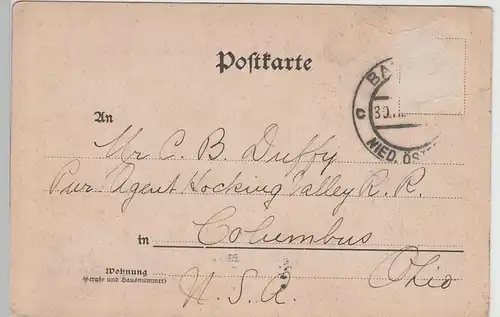 Postkarte
C
BA
30.
NIED. ÖST
An
Mr C. B. Duffy
Pur. Agent Hocking Valley R. R.
in Columbus
Wohnung
(Straße und Hausnummer)
Ohio
U. S. A.